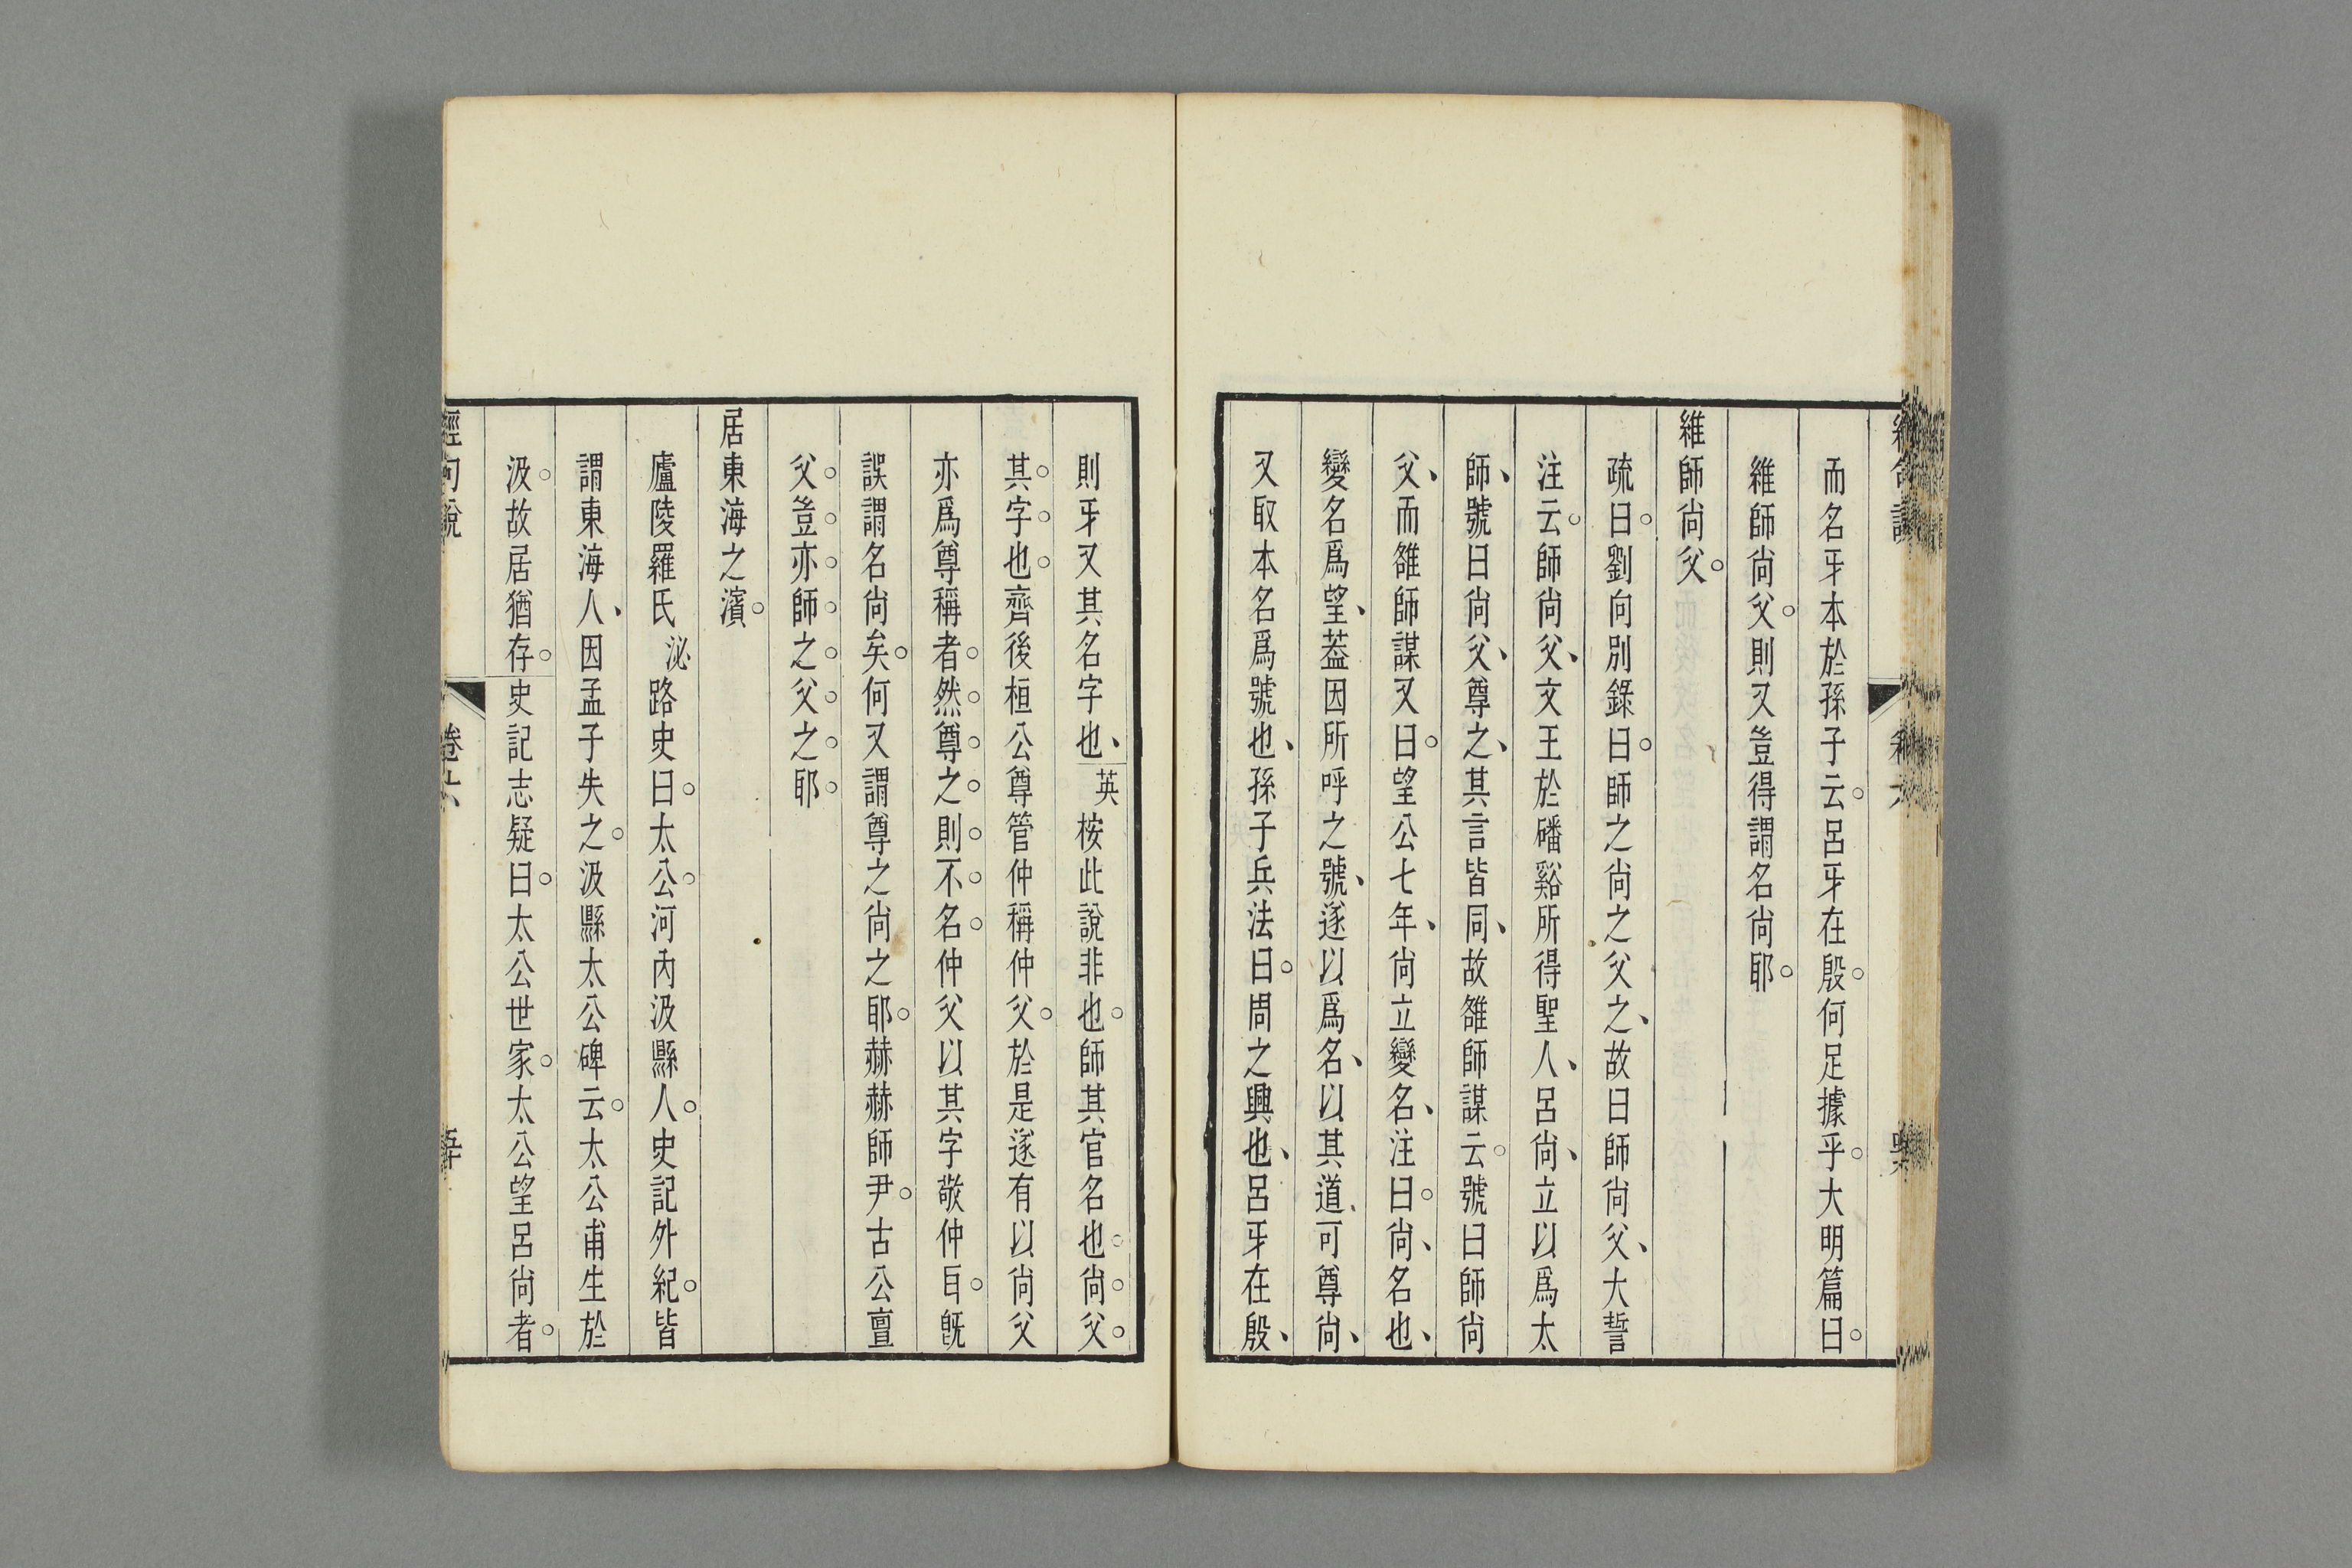 而名牙本於孫子云。呂牙在殷。何足據乎。大明篇曰。
維師尚父。則又豈得謂名尚耶。
維師尚父。
疏曰。劉向別錄曰。師之尚之父之、故曰師尚父、大誓
注云。師尚父、文王於磻谿所得聖人、呂尚、立以爲太
師、號曰尚父、尊之、其言皆同、故雒師謀云。號曰師尚
父、而雒師謀又曰。望公七年、尚立變名、注曰。尚、名也、
變名爲望、葢因所呼之號、遂以爲名、以其道可尊尚、
又取本名爲號也、孫子兵法曰。周之興也、呂牙在殷、
則牙又其名字也、英桉此說非也。師其官名也。尚。父。
其。字。也。齊後桓公尊管仲稱仲父。於是遂有以尚父
亦爲尊稱者。然。尊。之。則。不。名。仲父以其字敬仲耳。旣
誤謂名尚矣。何又謂尊之尚之耶。赫赫師尹。古公亶
父。豈。亦。師。之。父。之。耶。
居東海之濱。
廬陵羅氏泌路史曰。太公。河內汲縣人。史記外紀。皆
謂東海人、因孟子失之。汲縣太公碑云。太公甫生於
汲。故居猶存。史記志疑曰。太公世家。太公望呂尚者。
經句說
卷六